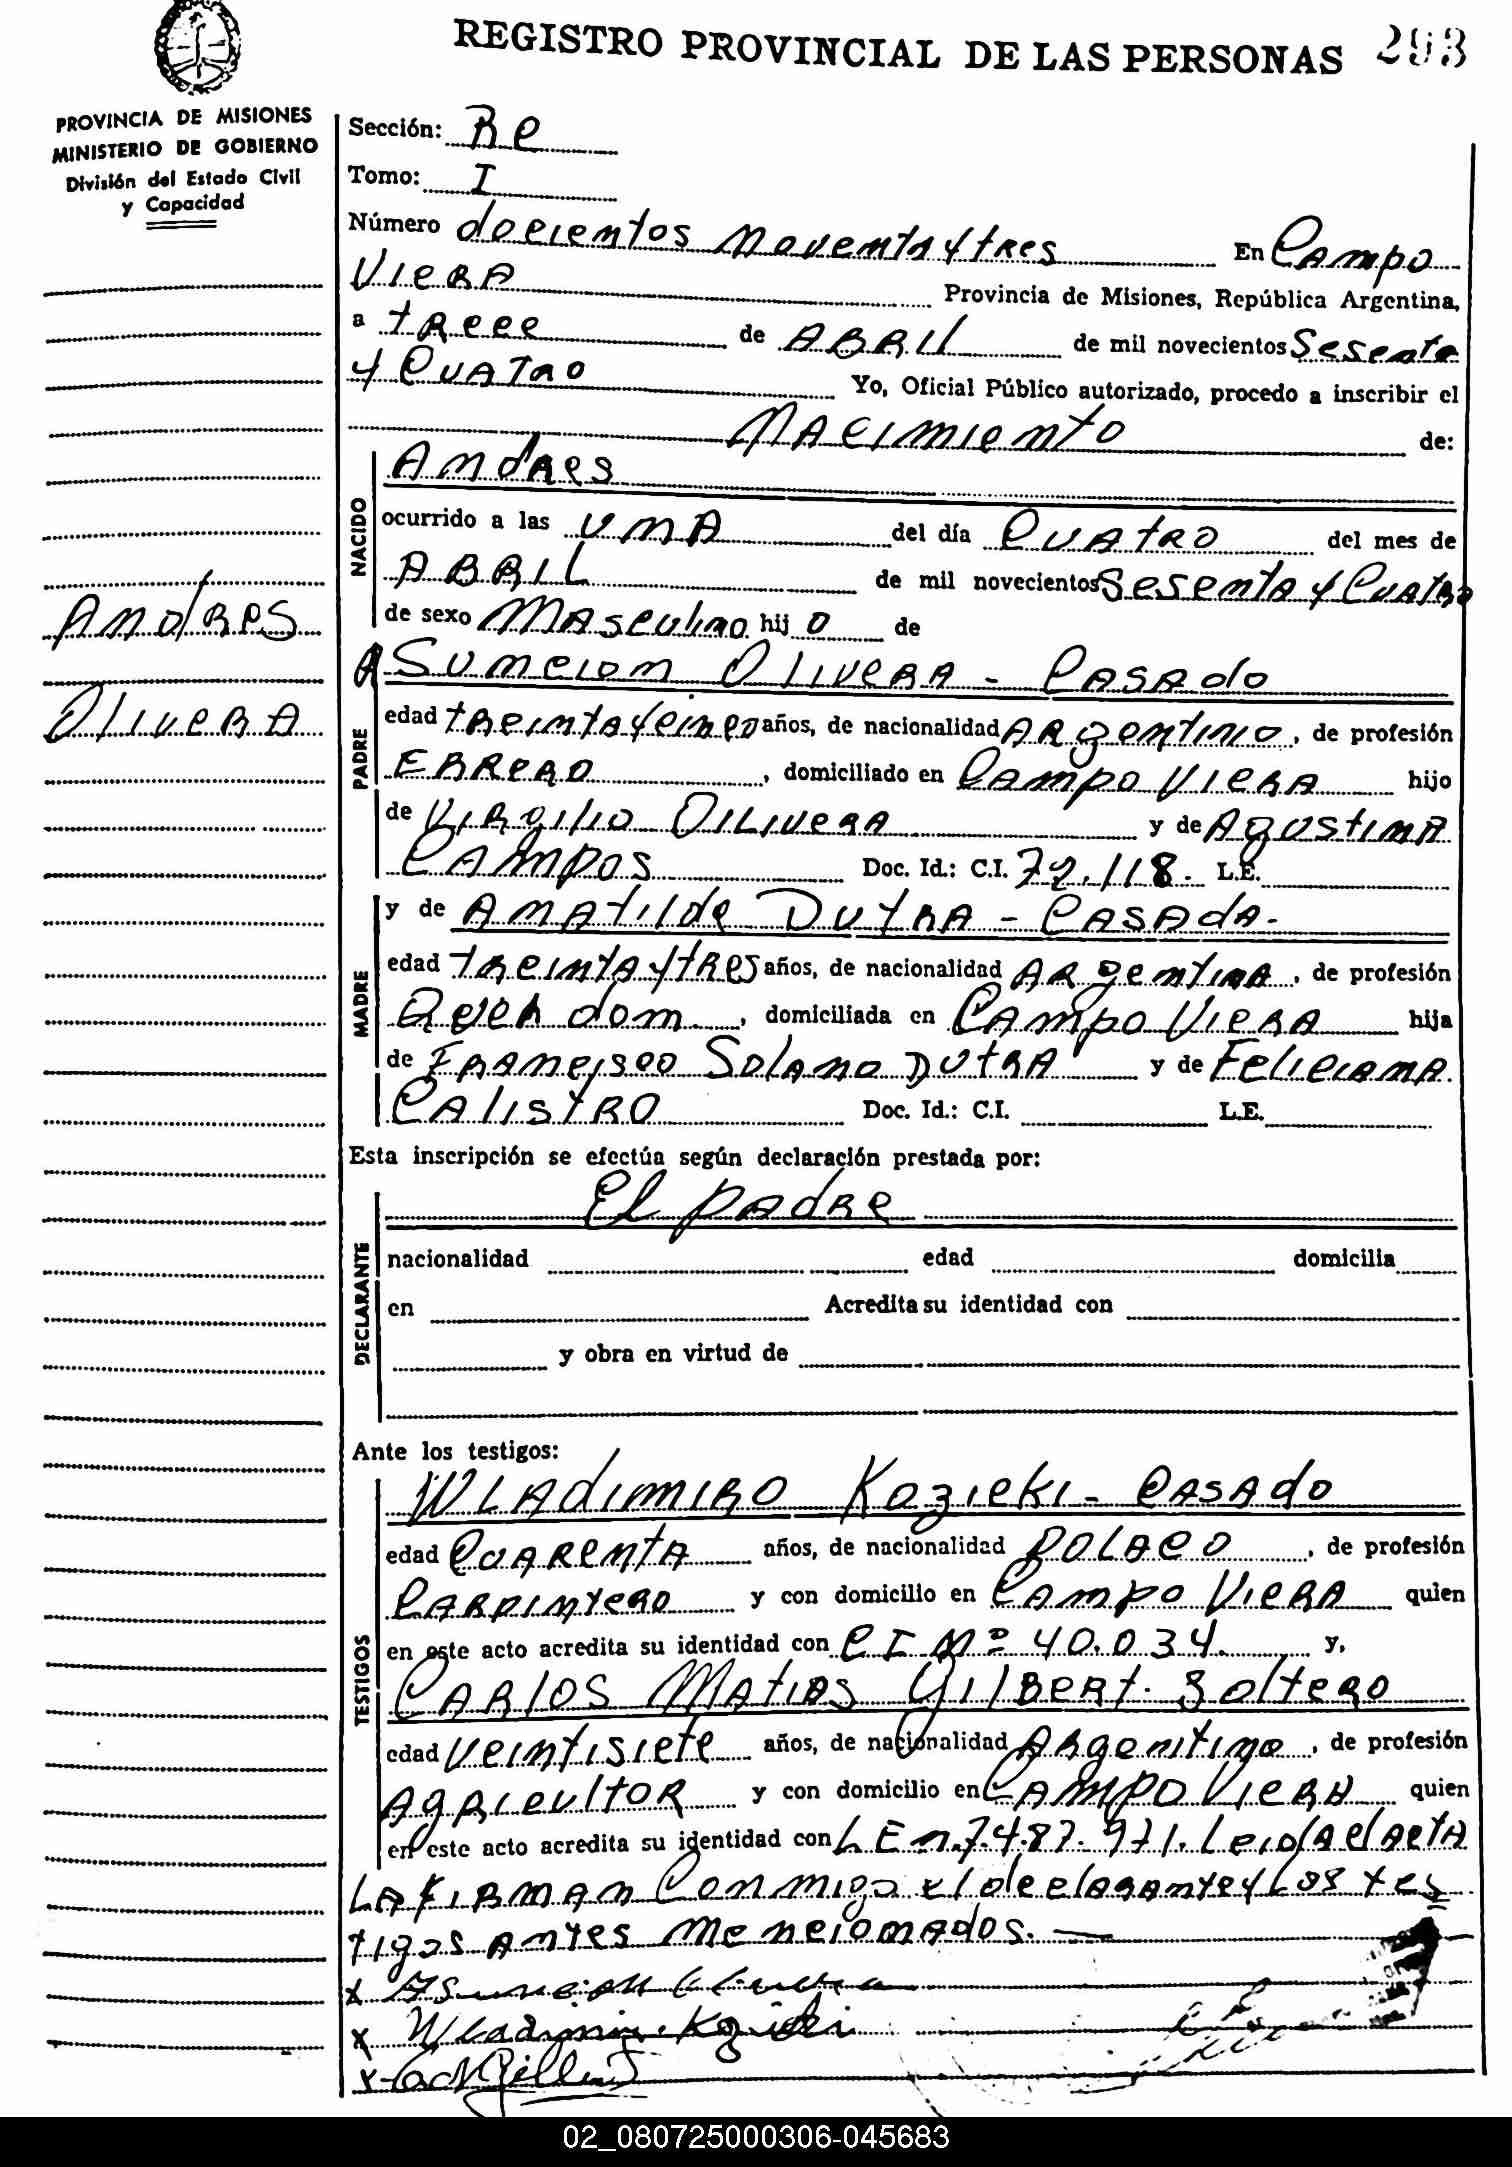 REGISTRO PROVINCIAL DE LAS PERSONAS 293
PROVINCIA DE MISIONES
MINISTERIO DE GOBIERNO
División del Estado Civil
y Capacidad
Sección: Re
Tomo: I
Número docientos noventa y tres En Campo
Viera Provincia de Misiones, República Argentina,
a trece de Abril de mil novecientos Sesenta
y Cuatro Yo, Oficial Público autorizado, procedo a inscribir el
Nacimiento de:
Andres
NACIDO
ocurrido a las una del día Cuatro del mes de
Abril de mil novecientos Sesenta y Cuatro
de sexo Masculino hijo de
Andres
Olivera
Asuncion Olivera - Casado
PADRE
edad treinta y cinco años, de nacionalidad Argentino, de profesión
Ebrero, domiciliado en Campo Viera hijo
de Virgilio Olivera y de Agustina
Campos Doc. Id.: C.I. 72.118. L.E.
y de Amatilde Dutra - Casada.
MADRE
edad treinta y tres años, de nacionalidad Argentina, de profesión
Queh dom., domiciliada en Campo Viera hija
de Francisco Solano Dutra y de Feliciana
Calistro Doc. Id.: C.I. L.E.
Esta inscripción se efectúa según declaración prestada por:
El padre
DECLARANTE
nacionalidad edad domicilia
en Acredita su identidad con
y obra en virtud de
Ante los testigos:
Wladimiro Kozicki - Casado
TESTIGOS
edad Cuarenta años, de nacionalidad Polaco, de profesión
Carpintero y con domicilio en Campo Viera quien
en este acto acredita su identidad con C I Nº 40.034. y,
Carlos Matias Gilbert. Soltero
edad Veintisiete años, de nacionalidad Argentino, de profesión
Agricultor y con domicilio en Campo Viera quien
en este acto acredita su identidad con L.E n. 7.487.971. Leida el acta
La firman Conmigo el declarante y Los tes
tigos antes mencionados.
x Asuncion Olivera
x Wladimiro Kozicki
x
02_080725000306-045683